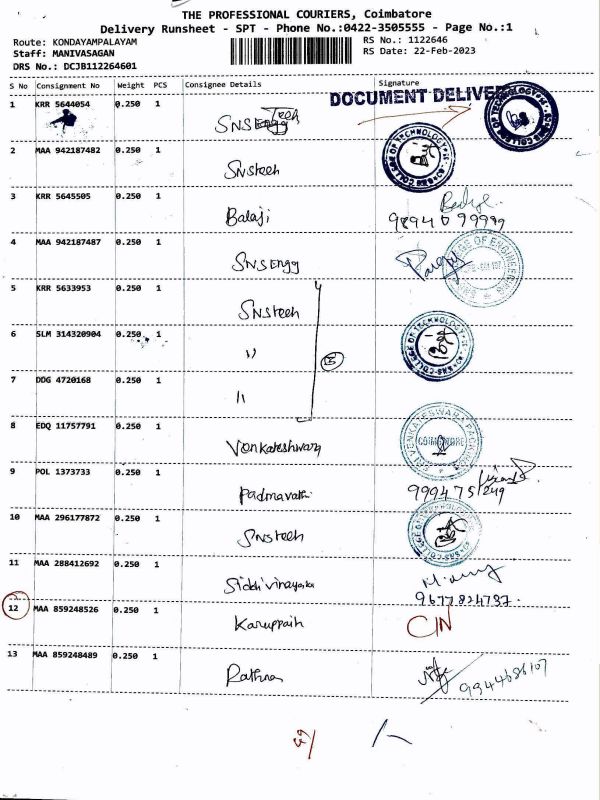 THE PROFESSIONAL COURIERS, Coimbatore
Delivery Runsheet - SPT - Phone No.:0422-3505555 - Page No.:1
Route: KONDAYAMPALAYAM RS No.: 1122646
Staff: MANIVASAGAN RS Date: 22-Feb-2023
DRS No.: DCJB112264601
S No Consignment No Weight PCS Consignee Details Signature
DOCUMENT DELIVE
1 KRR 5644054 0.250 1 SNS Engg Tech
2 MAA 942187482 0.250 1 SNStech
3 KRR 5645505 0.250 1 Balaji
4 MAA 942187487 0.250 1 SNSEngg
5 KRR 5633953 0.250 1 SNStech
6 SLM 314320904 0.250 1 "
7 DDG 4720168 0.250 1 "
8 EDQ 11757791 0.250 1 Venkateshwara COIMBATORE
9 POL 1373733 0.250 1 Padmavathi
10 MAA 296177872 0.250 1 SNStech
11 MAA 288412692 0.250 1 Siddhi vinayaka
12 MAA 859248526 0.250 1 Karuppaih CIN
13 MAA 859248489 0.250 1 Rathna